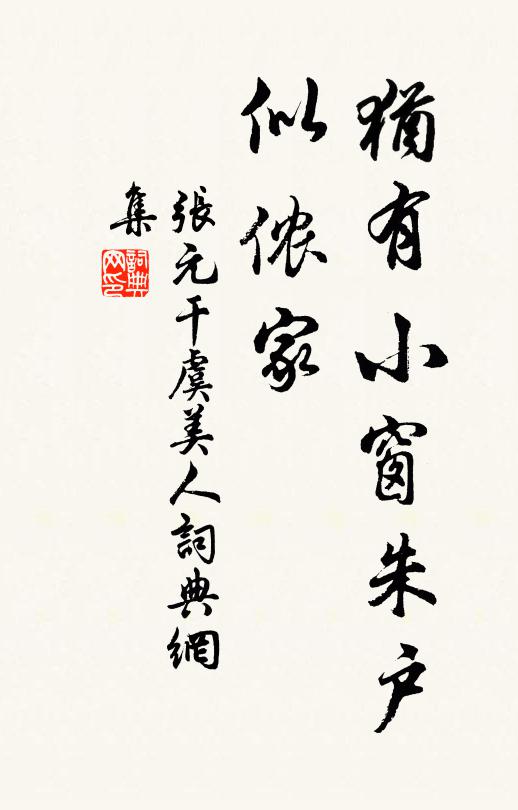 猶有小窗朱户
似侬家
張元干虞美人詞典網
集
詞典
网印